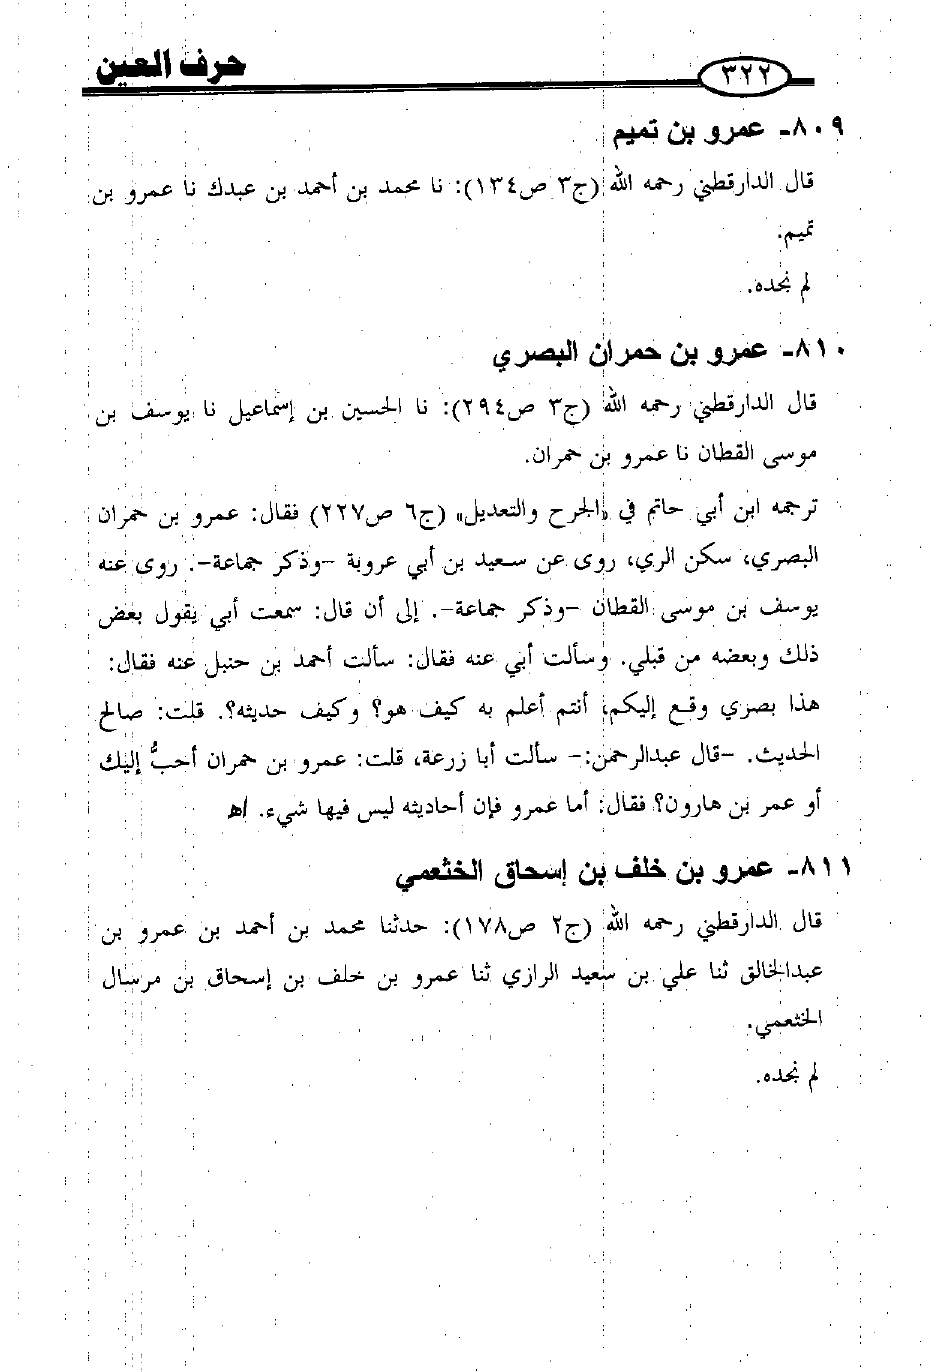 ٣٢٢ حرف العين
٨٠٩- عمرو بن تميم
قال الدارقطني رحمه الله (ج٣ ص١٣٤): نا محمد بن أحمد بن عبدك نا عمرو بن
تميم.
لم نجده.
٨١٠- عمرو بن حمران البصري
قال الدارقطني رحمه الله (ج٣ ص٢٩٤): نا الحسين بن إسماعيل نا يوسف بن
موسى القطان نا عمرو بن حمران.
ترجمه ابن أبي حاتم في «الجرح والتعديل» (ج٦ ص٢٢٧) فقال: عمرو بن حمران
البصري، سكن الري، روى عن سعيد بن أبي عروبة -وذكر جماعة-. روى عنه
يوسف بن موسى القطان -وذكر جماعة-. إلى أن قال: سمعت أبي يقول بعض
ذلك وبعضه من قبلي. وسألت أبي عنه فقال: سألت أحمد بن حنبل عنه فقال:
هذا بصري وقع إليكم، أنتم أعلم به كيف هو؟ وكيف حديثه؟. قلت: صالح
الحديث. -قال عبدالرحمن:- سألت أبا زرعة، قلت: عمرو بن حمران أحبُّ إليك
أو عمر بن هارون؟ فقال: أما عمرو فإن أحاديثه ليس فيها شيء. اﻫ
٨١١- عمرو بن خلف بن إسحاق الخثعمي
قال الدارقطني رحمه الله (ج٢ ص١٧٨): حدثنا محمد بن أحمد بن عمرو بن
عبدالخالق ثنا علي بن سعيد الرازي ثنا عمرو بن خلف بن إسحاق بن مرسال
الخثعمي.
لم نجده.